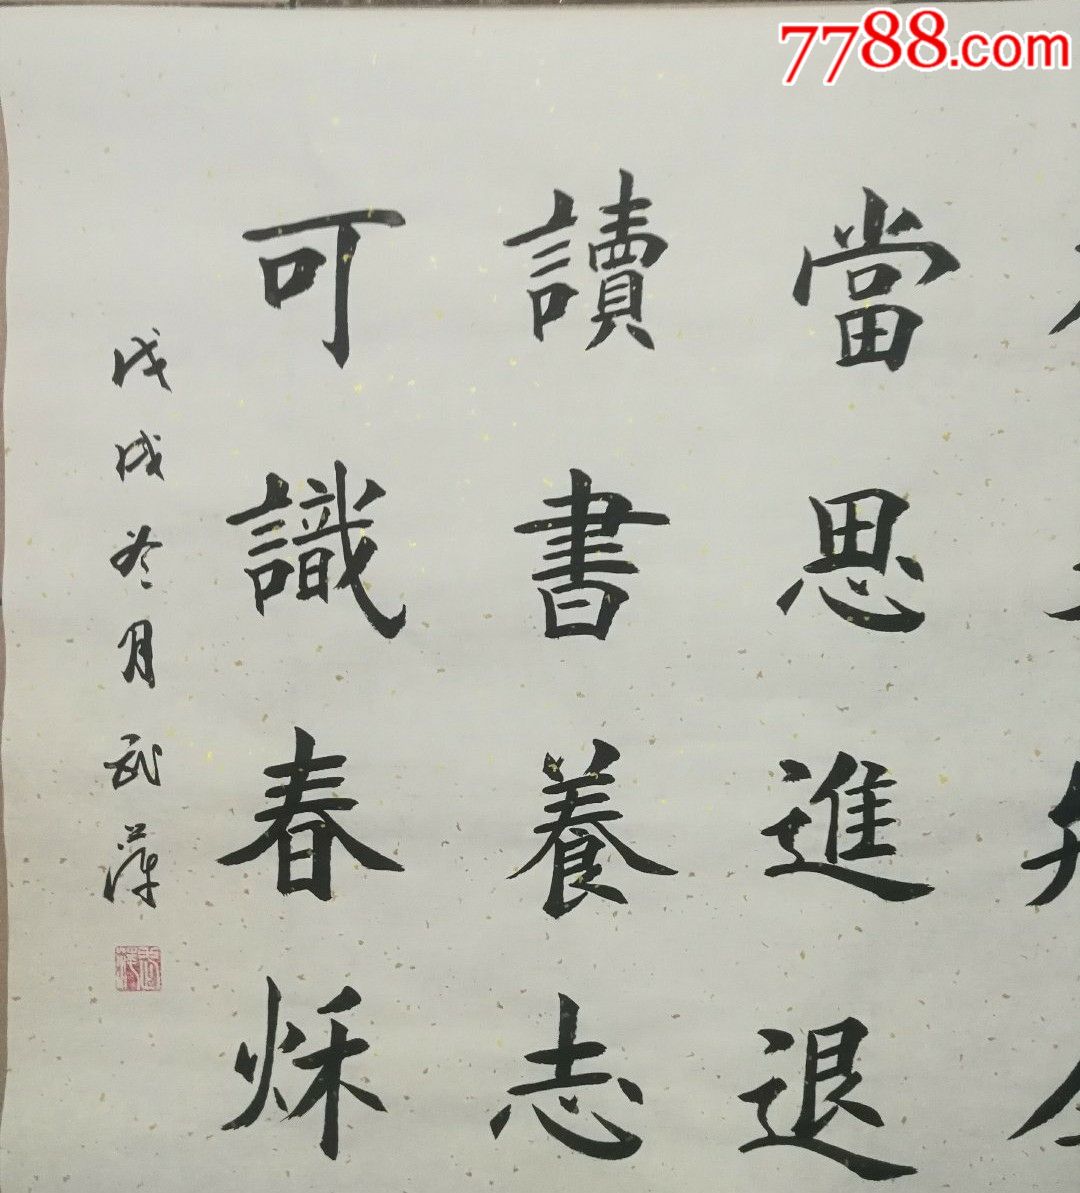 7788.com
當思進退
讀書養志
可識春秌
戊戌冬月武萍